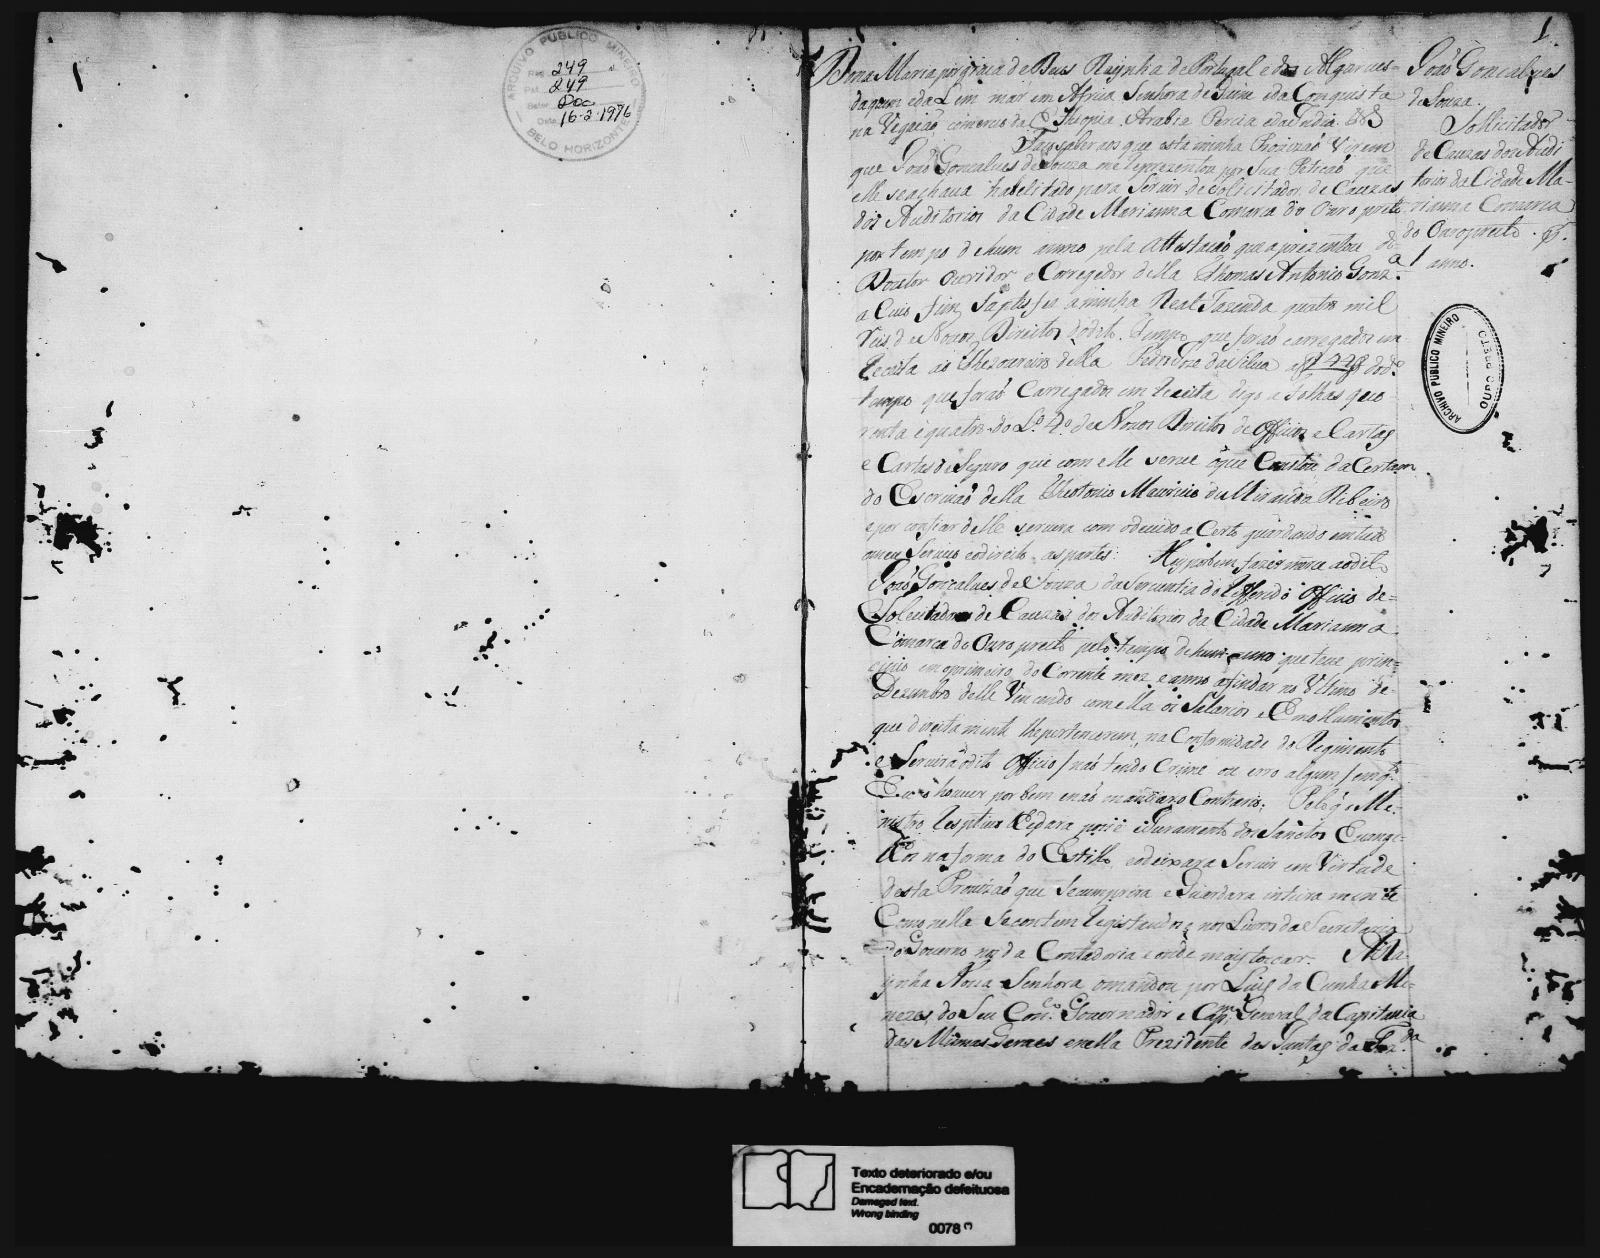 ARQUIVO PUBLICO MINEIRO
249
249
Doc
Data 16-2-1976
BELO HORIZONTE
1
Dona Maria por graça de Deos Raynha de Portugal e dos Algarues
daquem edaLem mar em Africa Senhora de Guine eda Conquista
na Vegação comercio da Ethiopia Arabia Percia eda India &
Faço saber aos que esta minha Provizaõ Virem
que Joaõ Goncalves de Souza me Reprezentou por Sua Petiçaõ que
elle seachava habelitado para Servir de Solicitador de Cauzas
dos Auditorios da Cidade Marianna Comarca do Ouro preto
por tempo de hum anno pela Attestaçaõ que aprezentou do
Doutor Ouvidor e Corregedor della Thomas Antonio Gonz.ª
a Cujo fim a minha Real Fazenda quatro mil
Reis de Novos Direitos do dito tempo que foraõ carregados em
Receita ao Thezoureiro della Pedro Joze da Silva do d.º
tempo que foraõ Carregados em Receita digo a folhas qua
renta e quatro do L.º 4.º de Novos Direitos de Officios e Cartas
e Cartas de Seguro que com elle serve o que Constou da Certam
do Escrivaõ della Theotonio Mauricio de Miranda Ribeiro
e por confiar delle servira com o devido a Certo guardando em tudo
o meu Serviço e o direito as partes: Hey por bem fazer merce ao dito
Joaõ Gonçalves de Souza da Serventia do Refferido Officio de=
Solicitador de Cauzas dos Auditorios da Cidade Marianna
Comarca do Ouro preto pelo tempo de hum anno que teve prin=
cipio em o primeiro do Corrente mez e anno a findar no Ultimo de
Dezembro delle Vencendo com ella os Salarios e Emollumentos
que direitamente lhe pertencerem, na Conformidade do Regimento
e Servirá o dito Officio / naõ tendo Crime ou erro algum / emq.to
Eu o houver por bem e naõ mandar o Contrario; Pelo q o Me=
nistro Respetivo lhe dara posse e Juramento dos Santos Evange=
lhos na forma do Estillo, e o deixara Servir em Virtude
desta Provizaõ que Secumprira e Guardara inteira mente
Como nella Secontem Registandoce nos Livros da Secretaria
do Governo no da Contadoria e onde mais tocar. A Ra
ynha Nossa Senhora o mandou por Luis da Cunha Me=
nezes, do Seu Con.º Governador e Cap.m General da Capitania
das Minas Geraes e nella Prezidente das Juntas da Faz.da
Joaõ Goncalves
de Souza.
Sollicitador
de Cauzas dos Audi
torios da Cidade Ma-
rianna Comarca
do Ouro preto. p.
1 anno.
ARCHIVO PUBLICO MINEIRO
OURO PRETO
Texto deteriorado e/ou
Encadernação defeituosa
Damaged text.
Wrong binding
0078